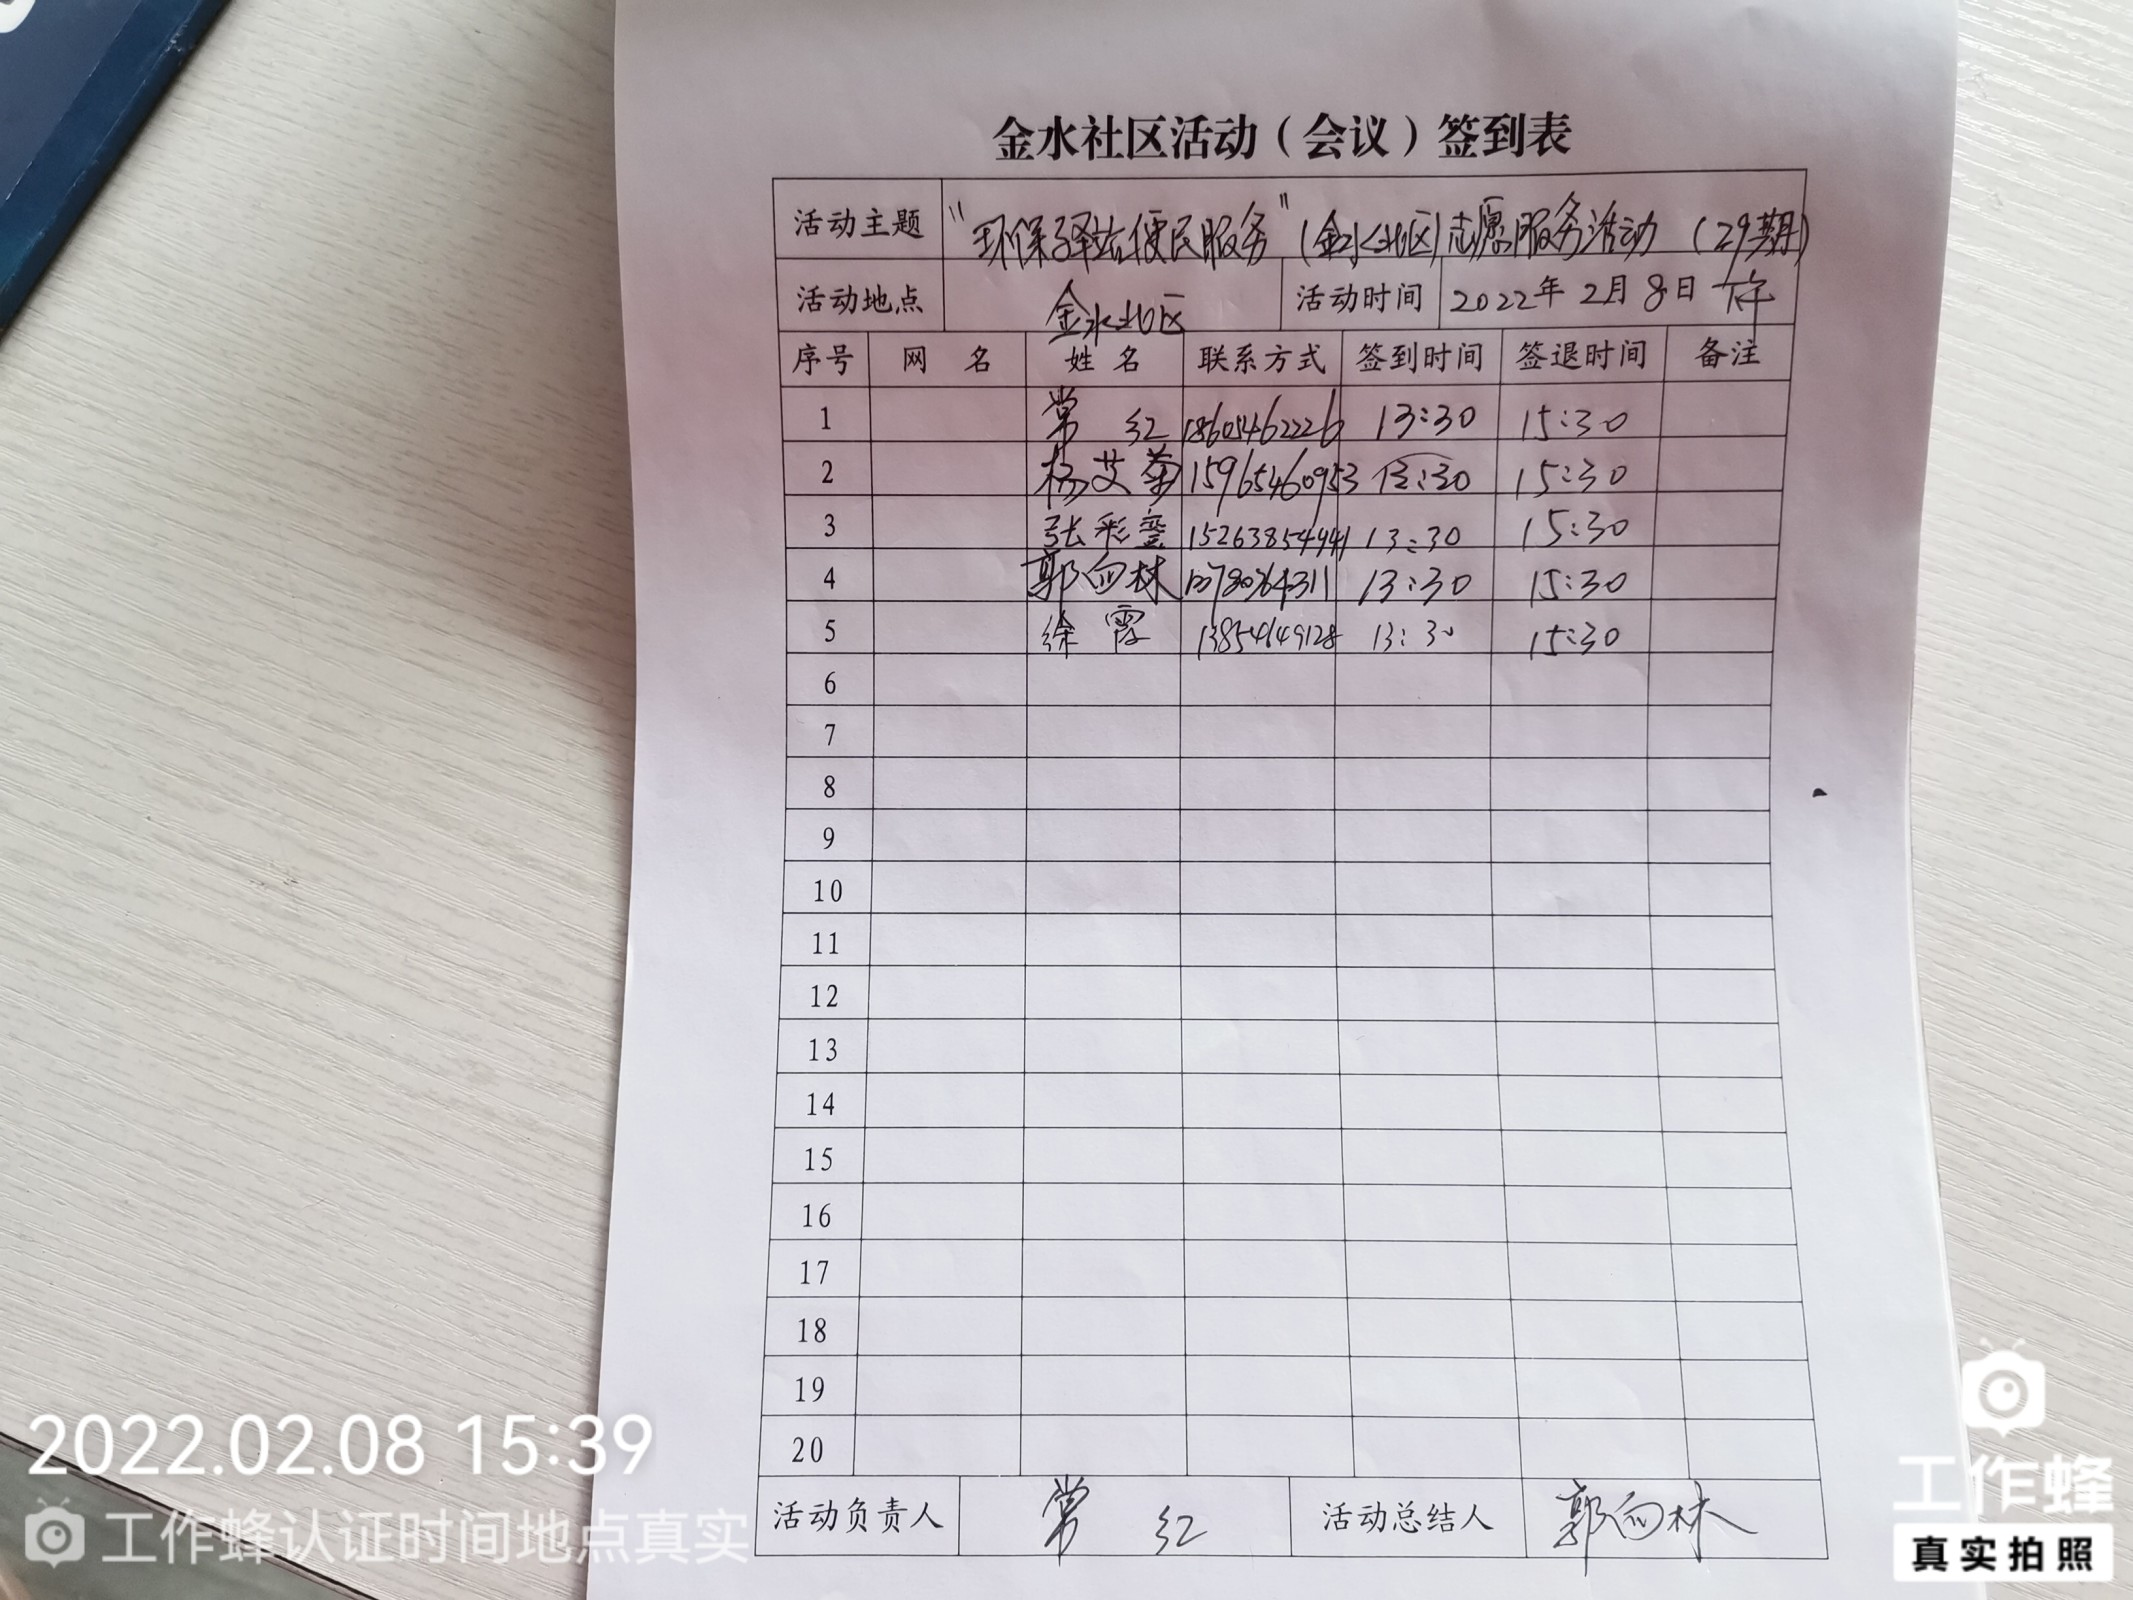 金水社区活动（会议）签到表
活动主题 “环保驿站便民服务”(金水北区)志愿服务活动（29期）
活动地点 金水北区 活动时间 2022年2月8日 下午
序号 网 名 姓 名 联系方式 签到时间 签退时间 备注
1 常 红 18605462226 13:30 15:30
2 杨艾菊 15965460953 13:30 15:30
3 张彩銮 15263854941 13:30 15:30
4 郭向林 13:30 15:30
5 徐霞 13854649128 13:30 15:30
6
7
8
9
10
11
12
13
14
15
16
17
18
19
20
活动负责人 常 红 活动总结人 郭向林
2022.02.08 15:39
工作蜂认证时间地点真实
工作蜂
真实拍照